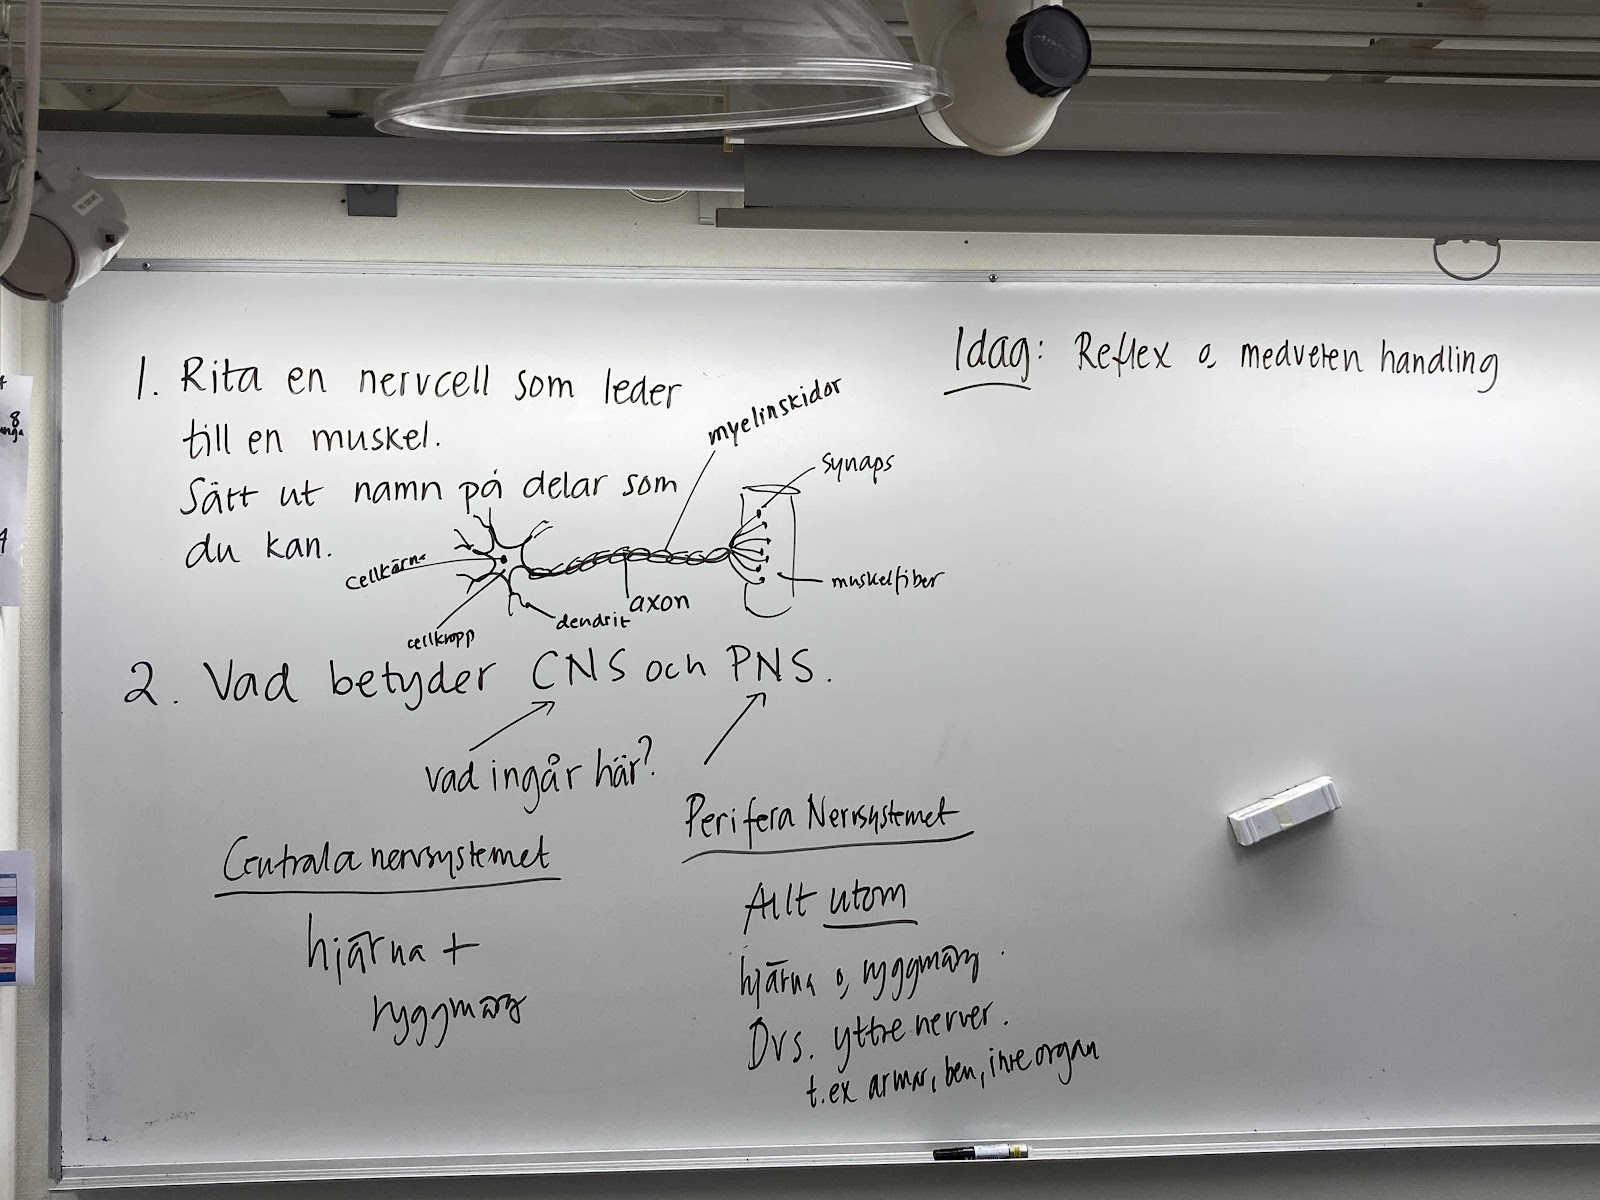 1. Rita en nervcell som leder
till en muskel.
Sätt ut namn på delar som
du kan.
myelinskidor
synaps
cellkärna
muskelfiber
axon
dendrit
cellkropp
2. Vad betyder CNS och PNS.
vad ingår här?
Centrala nervsystemet
hjärna +
ryggmärg
Perifera Nervsystemet
Allt utom
hjärna o, ryggmärg.
Dvs. yttre nerver.
t.ex armar, ben, inre organ
Idag: Reflex o, medveten handling
8